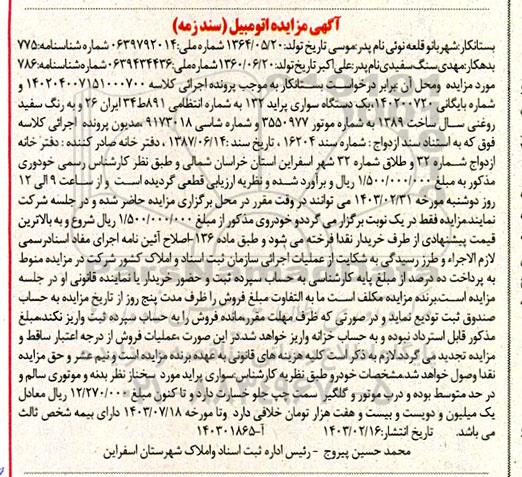 آگهی مزایده اتومبیل (سند زمه)
بستانکار:شهربانو قلعه نوئی نام پدر:موسی تاریخ تولد:۱۳۶۴/۰۵/۲۰ شماره ملی:۰۶۳۹۷۹۲۰۱۴ شماره شناسنامه:۷۷۵
بدهکار:مهدی سنگ سفیدی نام پدر:علی اکبر تاریخ تولد:۱۳۶۰/۰۶/۲۰ شماره ملی:۰۶۳۹۴۳۴۴۳۶ شماره شناسنامه:۷۸۶
مورد مزایده ومحل آن :برابر درخواست بستانکار به موجب پرونده اجرائی کلاسه ۱۴۰۲۰۴۰۰۷۱۵۱۰۰۰۷۰۰ و
شماره بایگانی ۱۴۰۲۰۰۷۲۰،یک دستگاه سواری پراید ۱۳۲ به شماره انتظامی ۸۹۱ط۳۴ ایران ۲۶ و به رنگ سفید
روغنی سال ساخت ۱۳۸۹ به شماره موتور ۳۵۵۰۹۷۷ و شماره شاسی ۹۱۷۳۰۱۸ ،مدیون پرونده اجرائی کلاسه
فوق که به استناد سند ازدواج : شماره سند ۱۶۲۰۴ ، تاریخ سند :۱۳۸۷/۰۶/۱۴ ، دفتر خانه صادر کننده : دفتر خانه
ازدواج شماره ۳۲ و طلاق شماره ۳۲ شهر اسفراین استان خراسان شمالی و طبق نظر کارشناس رسمی خودروی
مذکور به مبلغ ۱/۵۰۰/۰۰۰/۰۰۰ ریال و برآورد شده و نظریه ارزیابی قطعی گردیده است و از ساعت ۹ الی ۱۲
روز دوشنبه مورخه ۱۴۰۳/۰۲/۳۱ می توانند در وقت مقرر در محل برگزاری مزایده حاضر شده و در جلسه شرکت
نمایند.مزایده فقط در یک نوبت برگزار می گرددو خودروی مذکور از مبلغ ۱/۵۰۰/۰۰۰/۰۰۰ ریال شروع و به بالاترین
قیمت پیشنهادی از طرف خریدار نقدا فرخته می شود و طبق ماده ۱۳۶-اصلاح آئین نامه اجرای مفاد اسنادرسمی
لازم الاجراء و طرز رسیدگی به شکایت از عملیات اجرائی سازمان ثبت اسناد و املاک کشور شرکت در مزایده منوط
به پرداخت ده درصد از مبلغ پایه کارشناسی به حساب سپرده ثبت و حضور خریدار یا نماینده قانونی او در جلسه
مزایده است.برنده مزایده مکلف است ما به التفاوت مبلغ فروش را ظرف مدت پنج روز از تاریخ مزایده به حساب
صندوق ثبت تودیع نماید و در صورتی که ظرف مهلت مقرر،مانده فروش را به حساب سپرده ثبت واریز نکند،مبلغ
مذکور قابل استرداد نبوده و به حساب خزانه واریز خواهد شد.در این صورت ،عملیات فروش از درجه اعتبار ساقط و
مزایده تجدید می گردد.لازم به ذکر است کلیه هزینه های قانونی به عهده برنده مزایده است و نیم عشر و حق مزایده
نقدا وصول خواهد شد.مشخصات خودرو طبق نظر به کارشناس سواری پراید مورد سخناز نظر بدنه و موتوری سالم و
در حد متوسط بوده و درب موتور و گلگیر سمت چپ جلو خسارت دارد و تا کنون مبلغ ۱۲/۲۷۰/۰۰۰ ریال معادل
یک میلیون و دویست و بیست و هفت هزار تومان خلافی دارد وتا مورخه ۱۴۰۳/۰۷/۱۸ دارای بیمه شخص ثالث
می باشد. تاریخ انتشار:۱۴۰۳/۰۲/۱۶ آ-۱۴۰۳۰۱۸۶۵
محمد حسین پیروج - رئیس اداره ثبت اسناد واملاک شهرستان اسفراین